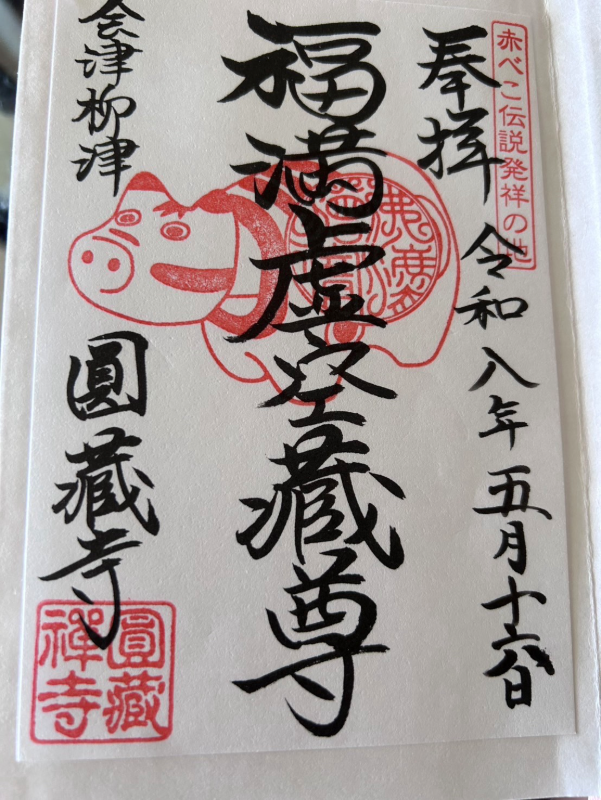 赤べこ伝説発祥の地
奉拝 令和八年五月十六日
福満虚空藏尊
会津柳津 圓藏寺
圓藏
禅寺